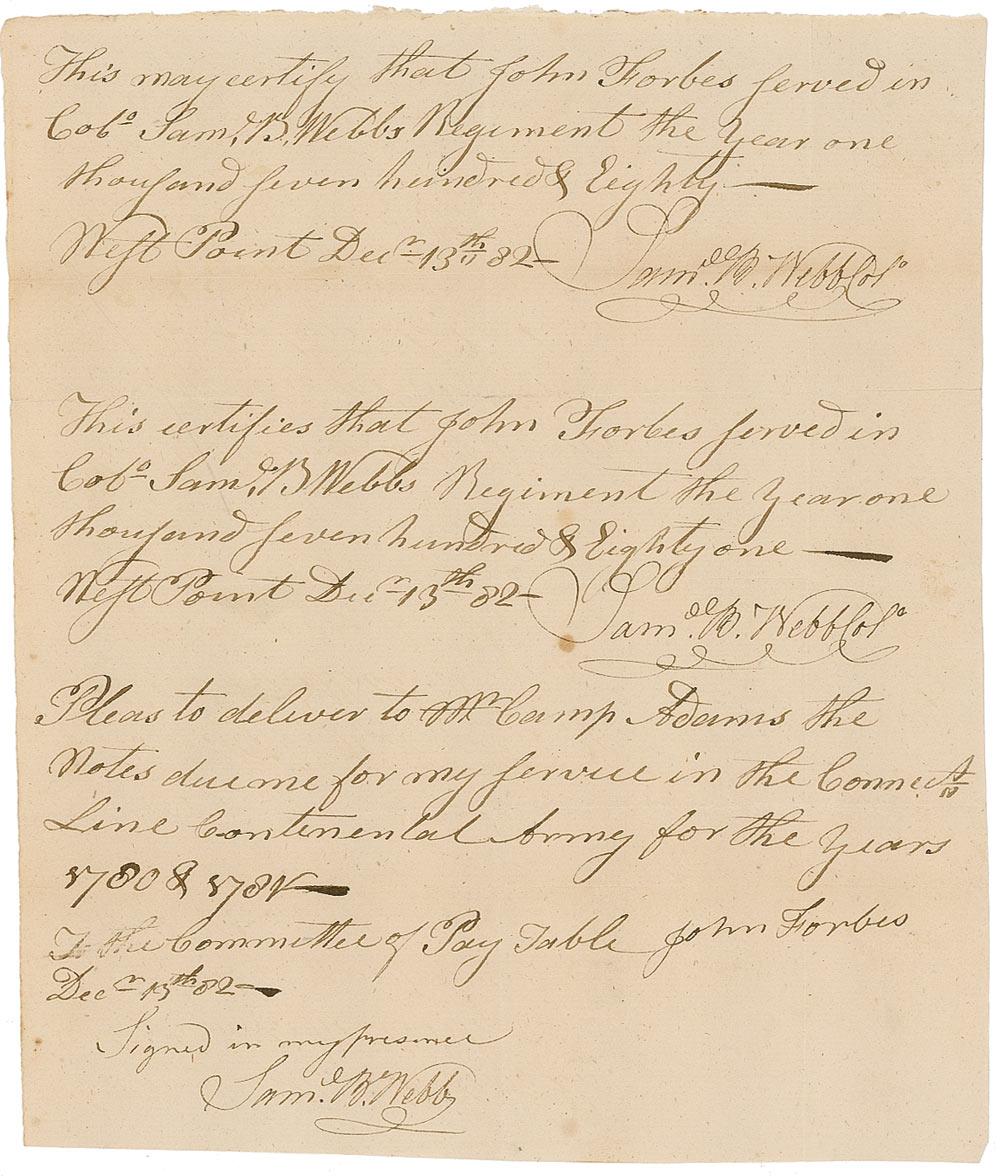 This may certify that John Forbes served in
Colo Samll B. Webbs Regiment the Year one
thousand seven hundred & Eighty —
West Point Decr 13th 82 — Samll B. Webb Colo
This certifies that John Forbes served in
Colo Saml B Webbs Regiment the Year one
thousand seven hundred & Eighty one —
West Point Decr 13th 82 — Samll B. Webb Colo
Pleas to deliver to Mr Camp Adams the
Notes due me for my service in the Connect
Line Continental Army for the Years
1780 & 1781 —
To the Committee of Pay Table John Forbes
Decr 13th 82 —
Signed in my presence
Saml. B. Webb